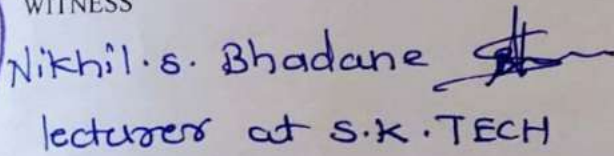 WITNESS
Nikhil.s. Bhadane
lecturer at S.K.TECH